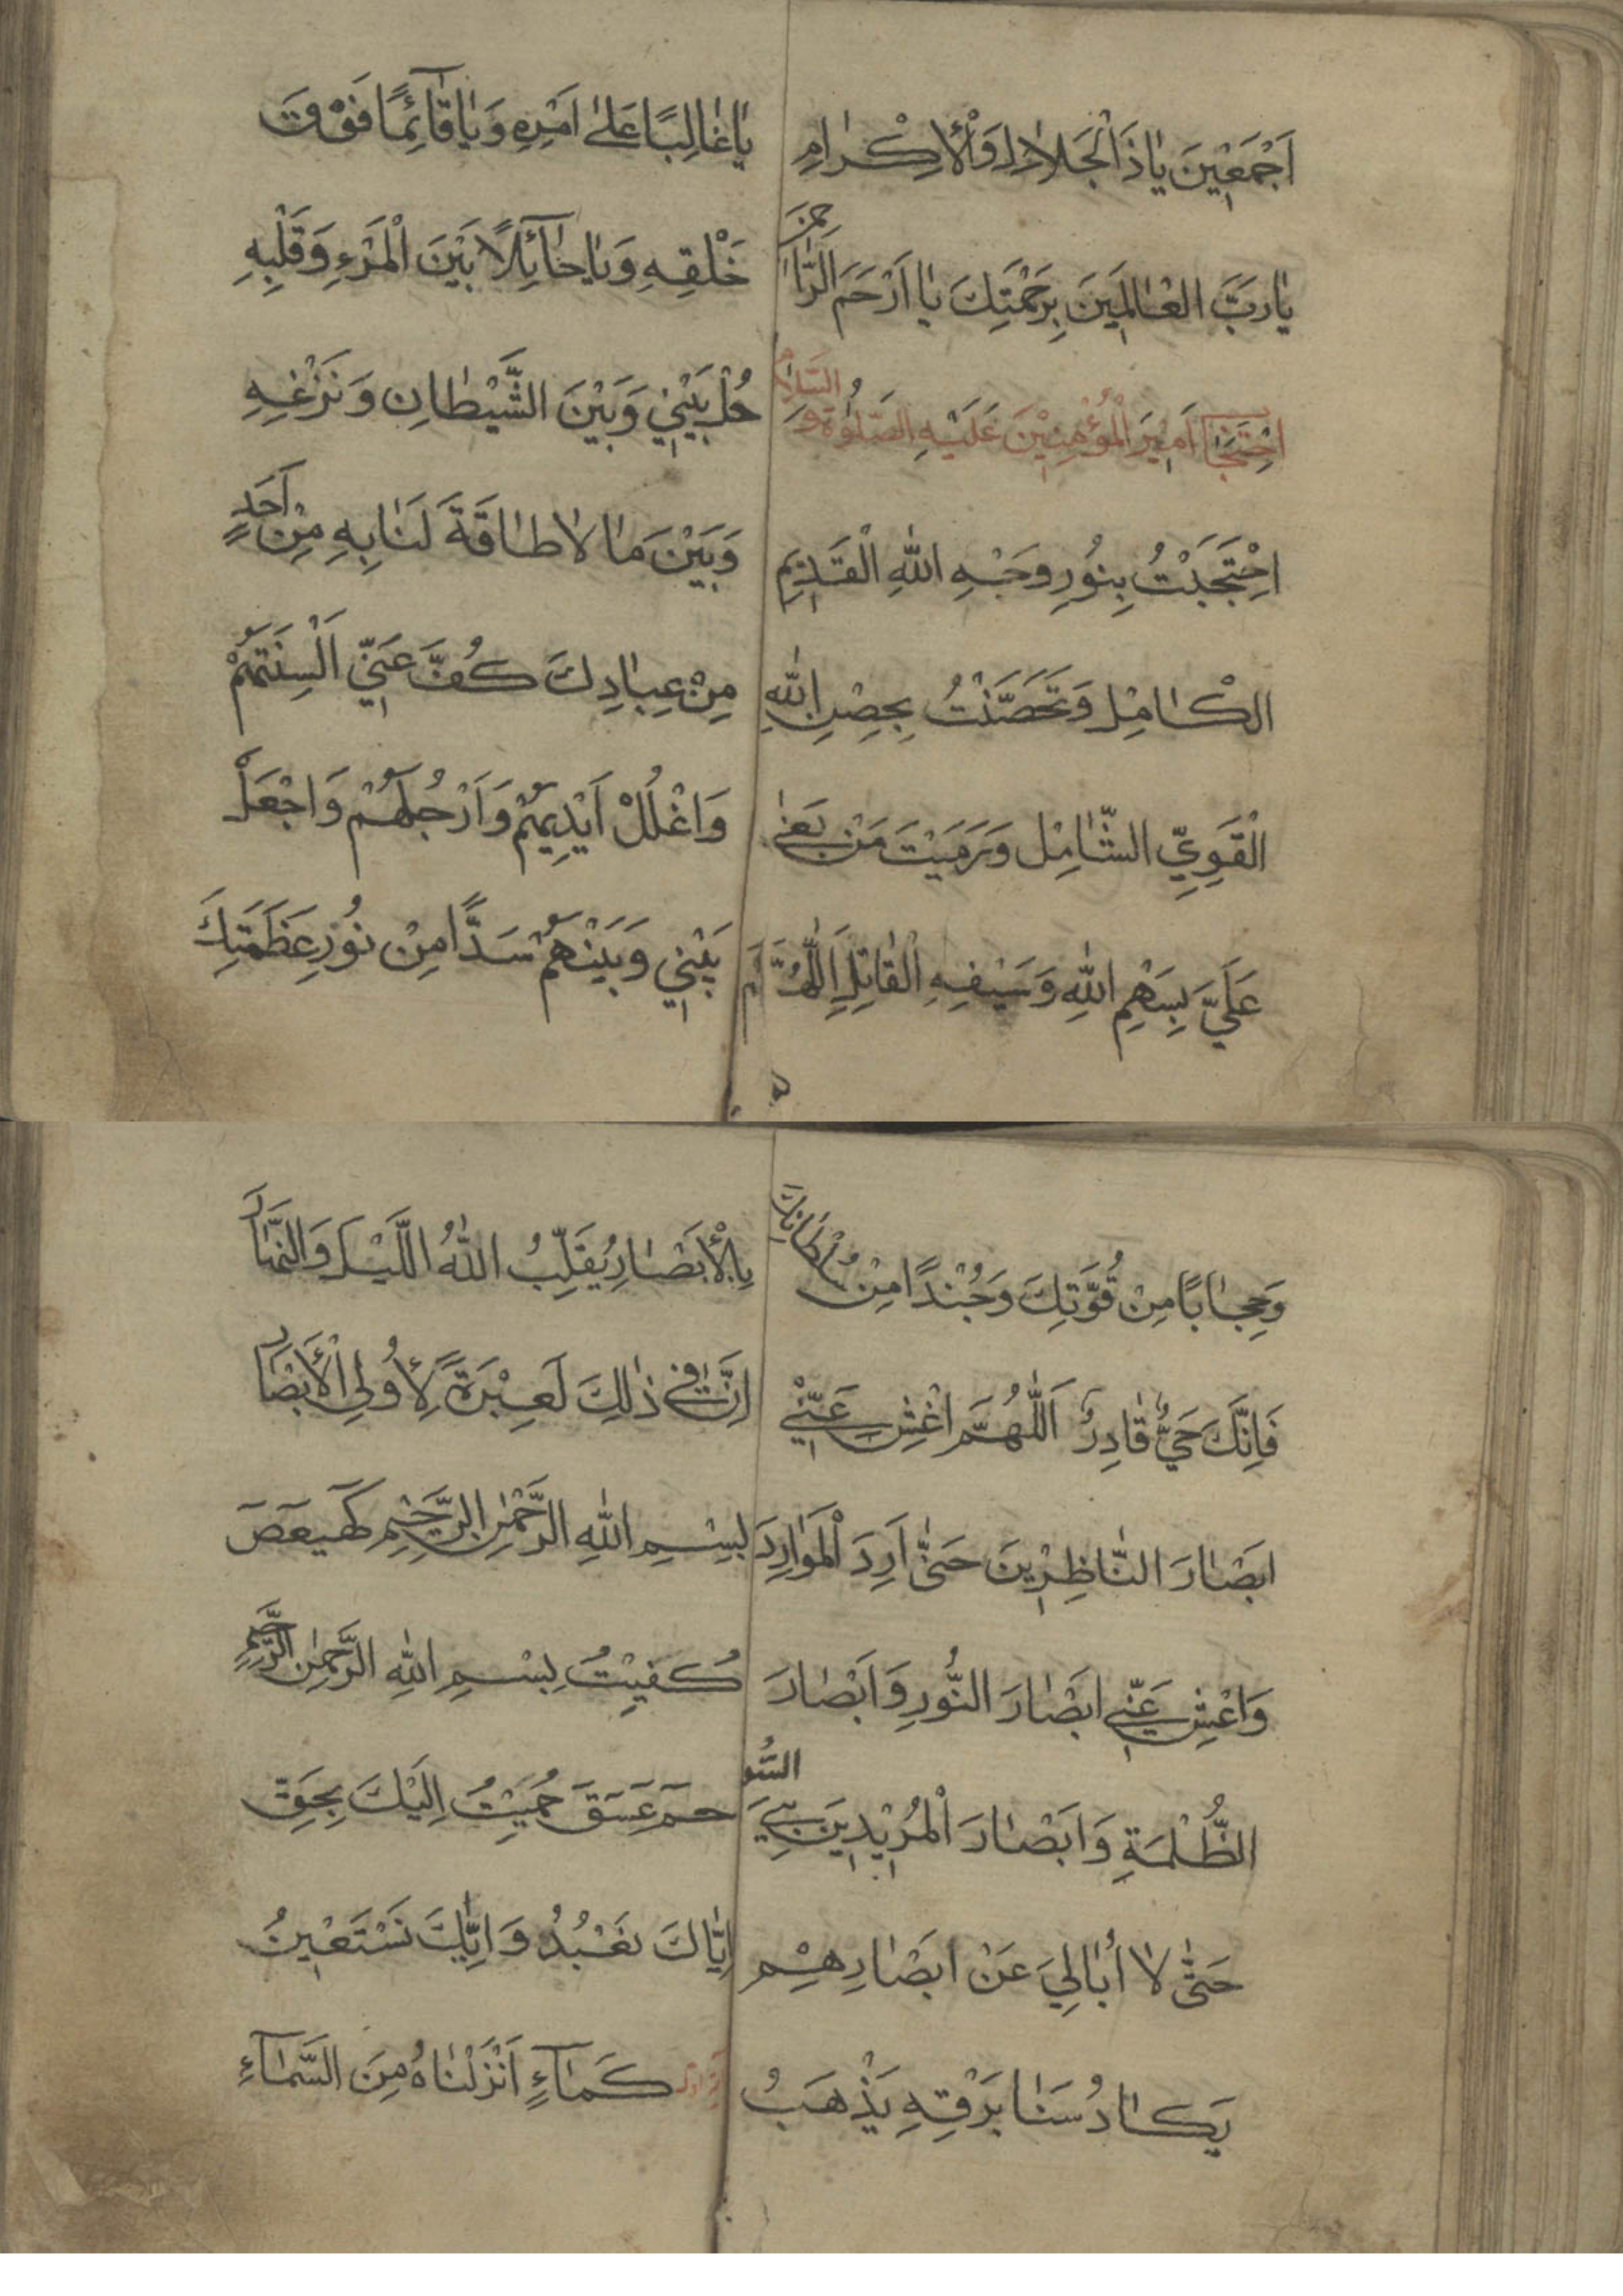 اَجْمَعِيْنَ يَا ذَاالْجَلَالِ وَالْاِكْرَامِ
يَارَبَّ الْعَالَمِيْنَ بِرَحْمَتِكَ يَا اَرْحَمَ الرَّاحِمِيْنَ
اِحْتِجَابُ اَمِيْرَ الْمُؤْمِنِيْنَ عَلَيْهِ الصَّلٰوةُ وَالسَّلَامُ
اِحْتَجَبْتُ بِنُوْرِ وَجْهِ اللّٰهِ الْقَدِيْمِ
الْكَامِلِ وَتَحَصَّنْتُ بِحِصْنِ اللّٰهِ
الْقَوِيِّ الشَّامِلِ وَرَمَيْتُ مَنْ بَغٰى
عَلَيَّ بِسَهْمِ اللّٰهِ وَسَيْفِهِ الْقَاتِلِ اَللّٰهُمَّ
يَا غَالِبًا عَلٰى اَمْرِهِ وَيَا قَآئِمًا فَوْقَ
خَلْقِهِ وَيَا حَآئِلًا بَيْنَ الْمَرْءِ وَقَلْبِهِ
حُلْ بَيْنِيْ وَبَيْنَ الشَّيْطَانِ وَنَزْغِهِ
وَبَيْنَ مَا لَا طَاقَةَ لَنَا بِهِ مِنْ اَحَدٍ
مِنْ عِبَادِكَ كُفَّ عَنِّيْ اَلْسِنَتَهُمْ
وَاغْلُلْ اَيْدِيَهُمْ وَاَرْجُلَهُمْ وَاجْعَلْ
بَيْنِيْ وَبَيْنَهُمْ سَدًّا مِنْ نُوْرِ عَظَمَتِكَ
وَحِجَابًا مِنْ قُوَّتِكَ وَجُنْدًا مِنْ سُلْطَانِكَ
فَاِنَّكَ حَيٌّ قَادِرٌ اَللّٰهُمَّ اغْشِ عَنِّيْ
اَبْصَارَ النَّاظِرِيْنَ حَتّٰى اَرِدَ الْمَوَارِدَ
وَاغْشِ عَنِّيْ اَبْصَارَ النُّوْرِ وَاَبْصَارَ
الظُّلْمَةِ وَاَبْصَارَ الْمُرِيْدِيْنَ بِيَ السُّوْءَ
حَتّٰى لَا اُبَالِيَ عَنْ اَبْصَارِهِمْ
يَكَادُ سَنَا بَرْقِهِ يَذْهَبُ
بِالْاَبْصَارِ يُقَلِّبُ اللّٰهُ اللَّيْلَ وَالنَّهَارَ
اِنَّ فِيْ ذٰلِكَ لَعِبْرَةً لِاُولِي الْاَبْصَارِ
بِسْمِ اللّٰهِ الرَّحْمٰنِ الرَّحِيْمِ كٓهٰيٰعٓصٓ
كُفِيْتُ بِسْمِ اللّٰهِ الرَّحْمٰنِ الرَّحِيْمِ
حٓمٓ عٓسٓقٓ حُمِيْتُ اِلَيْكَ بِحَقِّ
اِيَّاكَ نَعْبُدُ وَاِيَّاكَ نَسْتَعِيْنُ
كَمَآءٍ اَنْزَلْنَاهُ مِنَ السَّمَآءِ